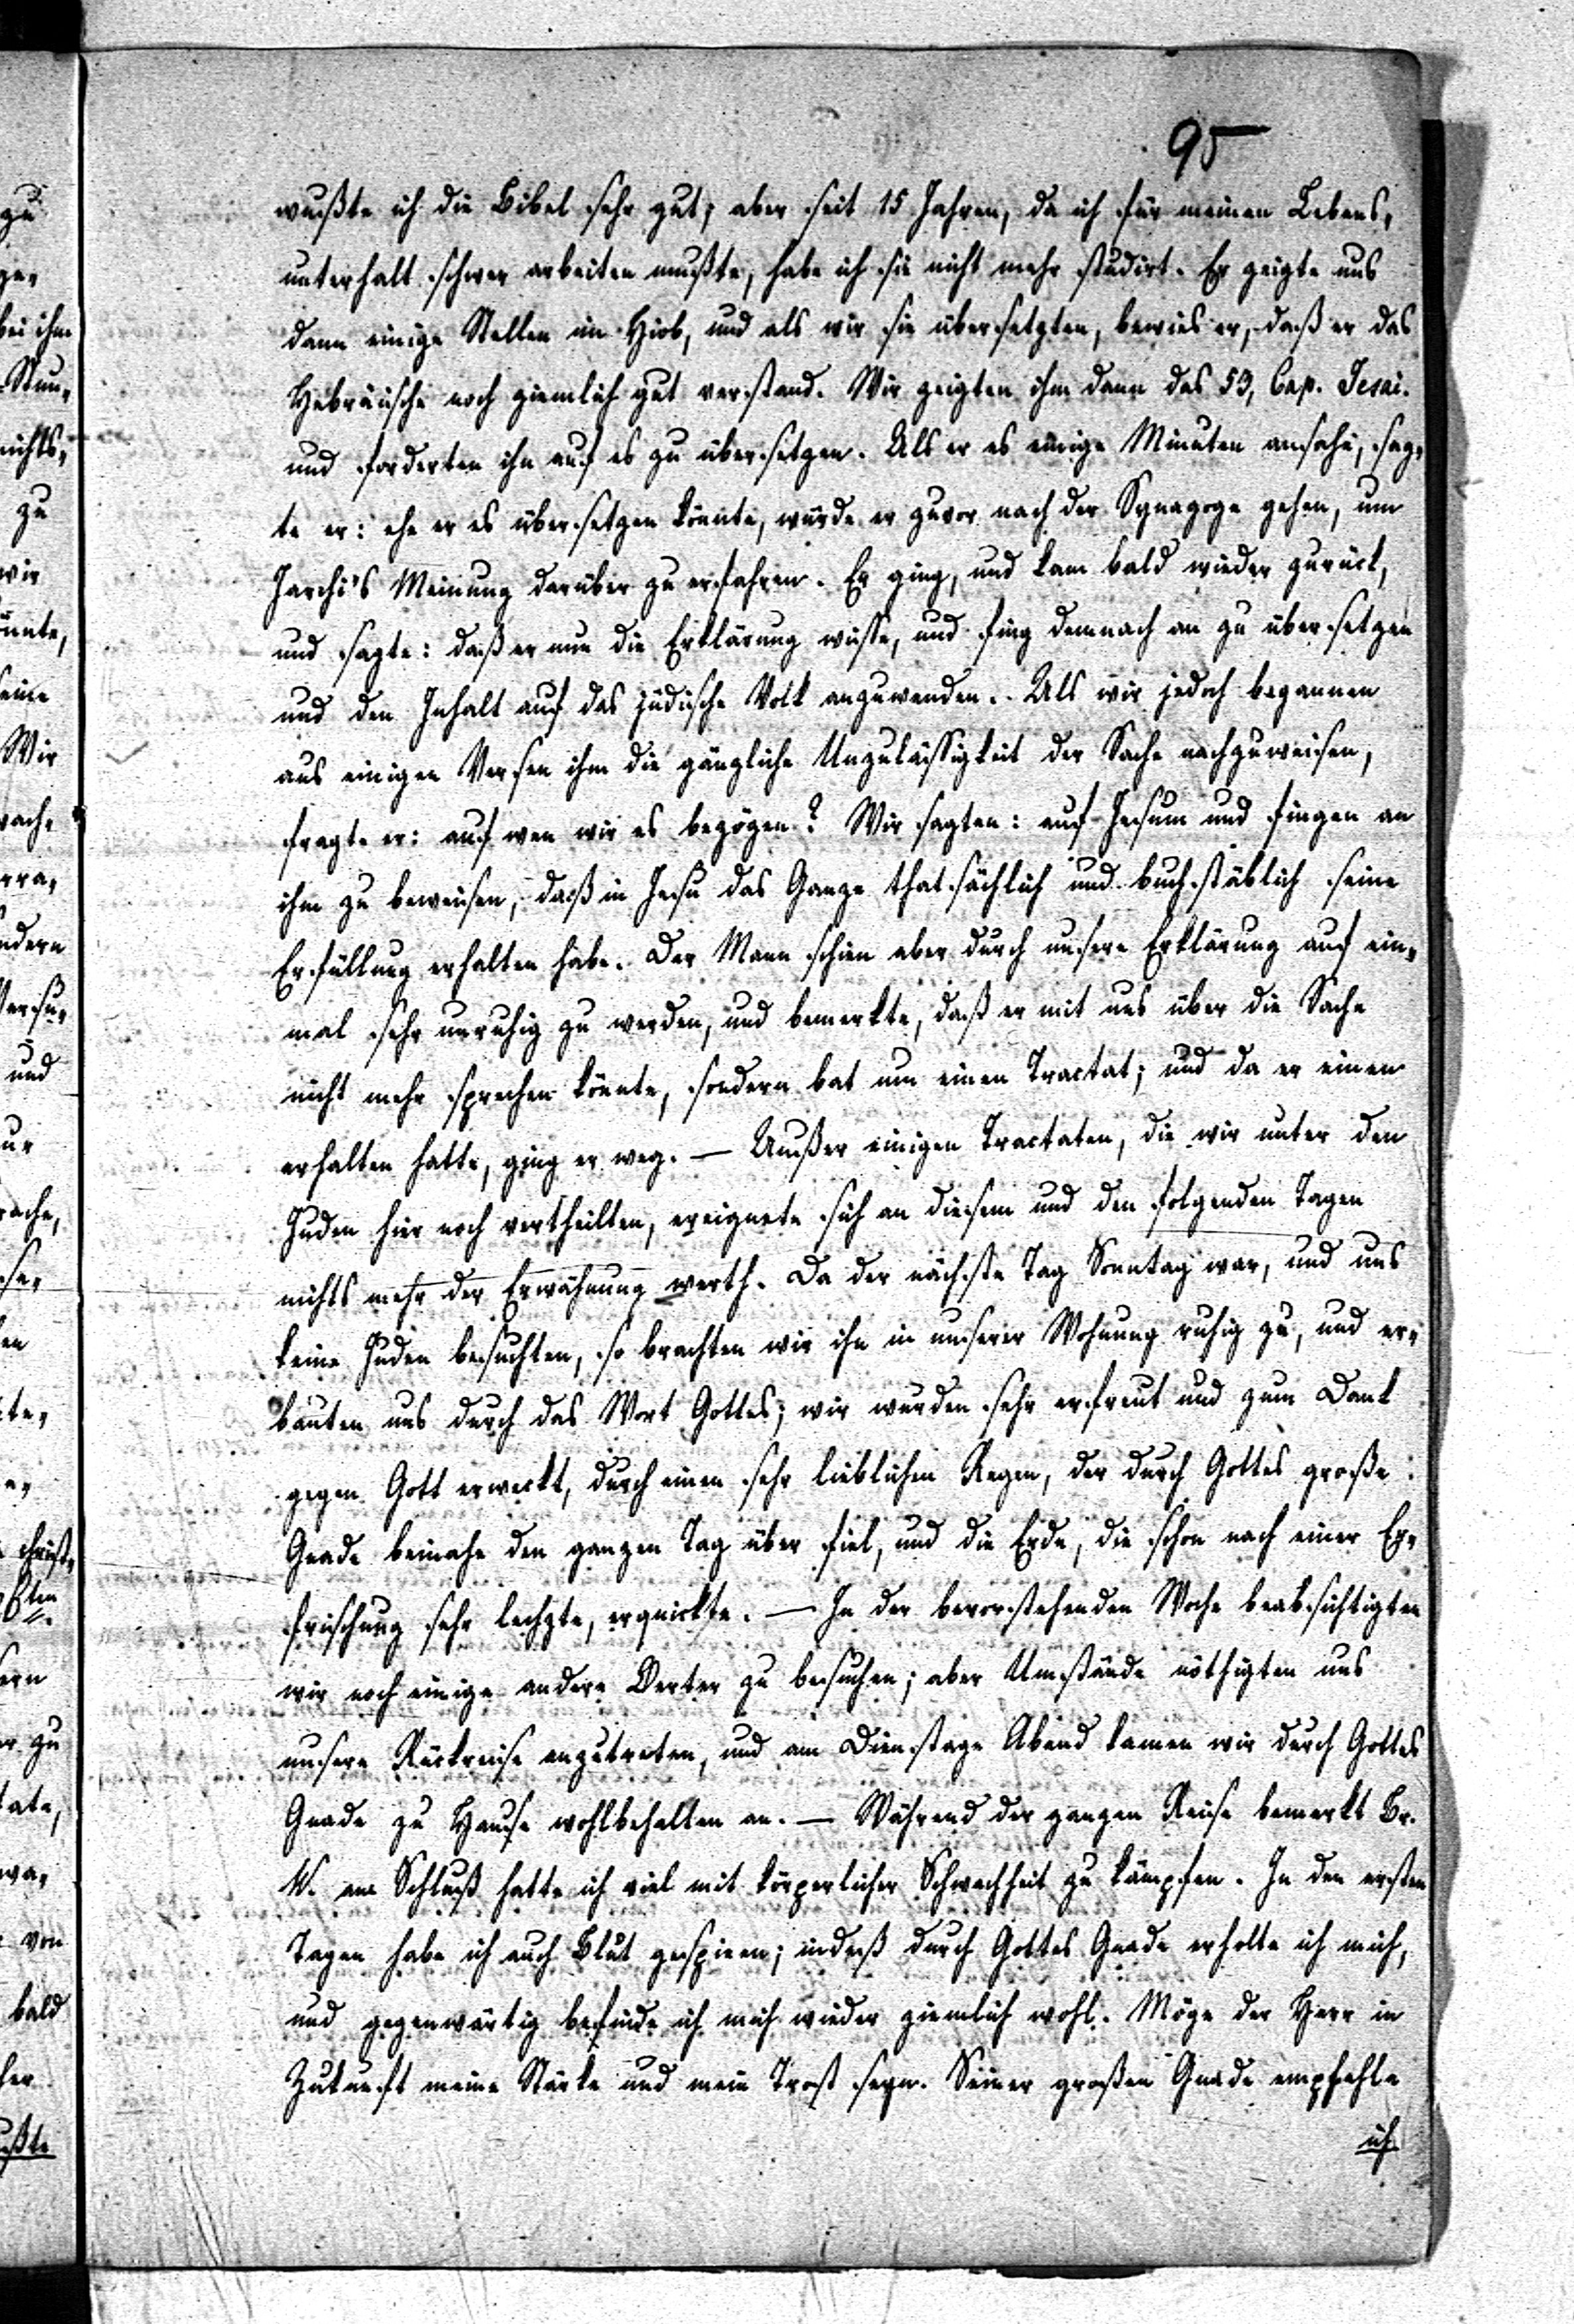 95
wußte ich die Bibel sehr gut, aber seit 15 Jahren, da ich für meinen Lebens,
unterhalt schwer arbeiten mußte, habe ich sie nicht mehr studirt. Er zeigte uns
dann einige Stellen im Hiob, und als wir sie übersetzten, bewies er, daß er das
Hebräische noch ziemlich gut verstand. Wir zeigten ihm dann das 53, Cap. Jesai.
und forderten ihn auf es zu übersetzen. Als er es einige Minuten ansahe, sag,
te er: ehe er es übersetzen könnte, würde er zuvor nach der Synagoge gehen, um
Jarchi's Meinung darüber zu erfahren. Er ging, und kam bald wieder zurück,
und sagte: daß er nun die Erklärung wisse, und fing demnach an zu übersetzen
und den Inhalt auf das jüdische Volk anzuwenden. Als wir jedoch begannen
aus einigen Versen ihm die gänzliche Unzulässigkeit der Sache nachzuweisen,
fragte er: auf wen wir es bezögen? Wir sagten: auf Jesum und fingen an
ihm zu beweisen, daß in Jesu das Ganze thatsächlich und buchstäblich seine
Erfüllung erhalten habe. Der Mann schien aber durch unsere Erklärung auf ein,
mal sehr unruhig zu werden, und bemerkte, daß er mit uns über die Sache
nicht mehr sprechen könnte, sondern bat um einen Tractat; und da er einen
erhalten hatte, ging er weg. — Außer einigen Tractaten, die wir unter den
Juden hier noch vertheilten, ereignete sich an diesem und den folgenden Tagen
nichts mehr der Erwähnung werth. Da der nächste Tag Sonntag war, und uns
keine Juden besuchten, so brachten wir ihn in unserer Wohnung ruhig zu, und er,
bauten uns durch das Wort Gottes; wir wurden sehr erfreut und zum Dank
gegen Gott erweckt, durch einen sehr lieblichen Regen, der durch Gottes große
Gnade beinahe den ganzen Tag über fiel, und die Erde, die schon nach einer Er,
frischung sehr lechzte, erquickte. — In der bevorstehenden Woche beabsichtigten
wir noch einige andere Oerter zu besuchen; aber Umstände nöthigten uns
unsere Rückreise anzutreten, und am Dienstage Abend kamen wir durch Gottes
Gnade zu Hause wohlbehalten an. — Während der ganzen Reise bemerkt Br.
W. am Schluß hatte ich viel mit körperlicher Schwachheit zu kämpfen. In den ersten
Tagen habe ich auch Blut gespieen; indeß durch Gottes Gnade erholte ich mich,
und gegenwärtig befinde ich mich wieder ziemlich wohl. Möge der Herr in
Zukunft meine Stärke und mein Trost seyn. Seiner großen Gnade empfehle
ich